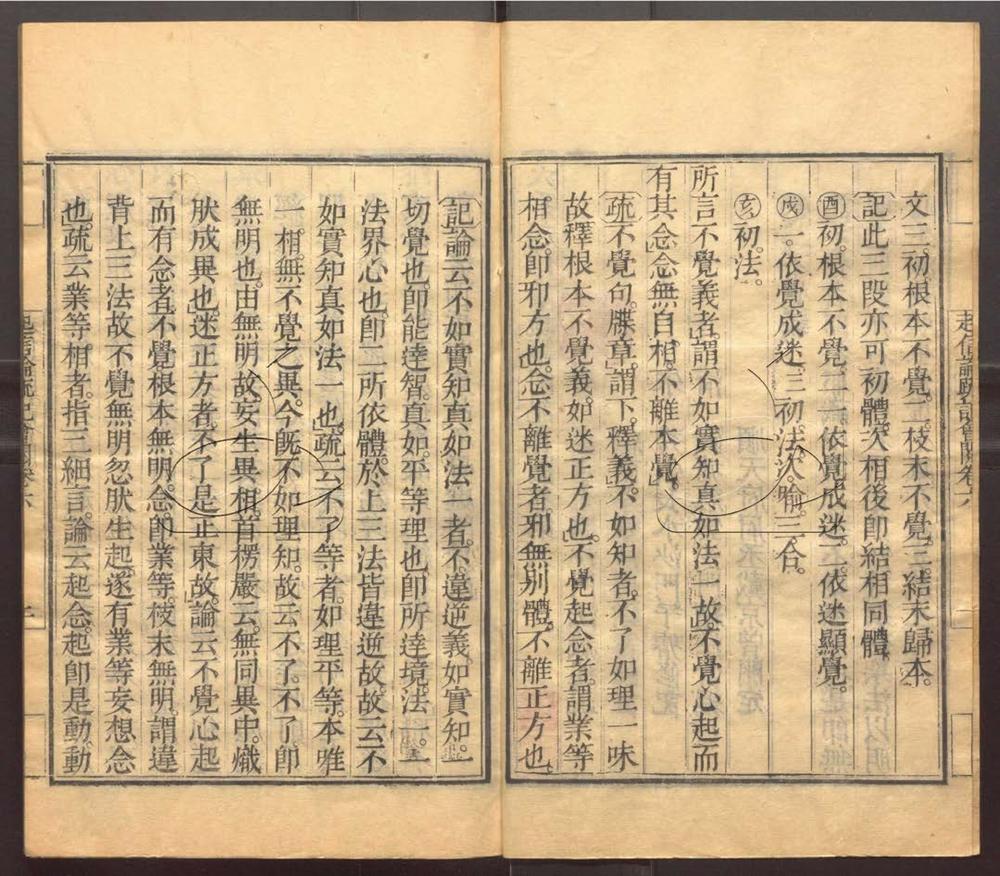 起信論疏記會閱卷六
文三。初、根本不覺。二、枝末不覺。三、結末歸本。
記此三段亦可初體。次相後卽結相同體。
酉初。根本不覺。二。一、依覺成迷。二、依迷顯覺。
戌一。依覺成迷。三。初、法。次、喻。三、合。
亥初。法。
所言不覺義者。謂不如實知真如法一故。不覺心起而
有其念。念無自相。不離本覺。
疏不覺句。牒章。謂下。釋義。不如知者。不了如理一味
故釋根本不覺義。如迷正方也。不覺起念者。謂業等
相念。卽邪方也。念不離覺者。邪無別體。不離正方也。
記論云不如實知真如法一者。不。違逆義。如實知。一
切覺也。卽能達智。真如。平等理也。卽所達境。法一。一
法界心也。卽二所依體。於上三法皆違逆故。故云不
如實知真如法一也。疏云不了等者。如理平等。本唯
一相。無不覺之異。今旣不如理知。故云不了。不了卽
無明也。由無明故。妄生異相。首楞嚴云。無同異中。熾
肰成異也。迷正方者。不了是正東故。論云不覺心起
而有念者。不覺根本無明。念卽業等。枝末無明。謂違
背上三法故不覺無明忽肰生起。遂有業等妄想念
也。疏云業等相者。指三細言。論云起念。起卽是動。動
起信論疏記會閱卷六